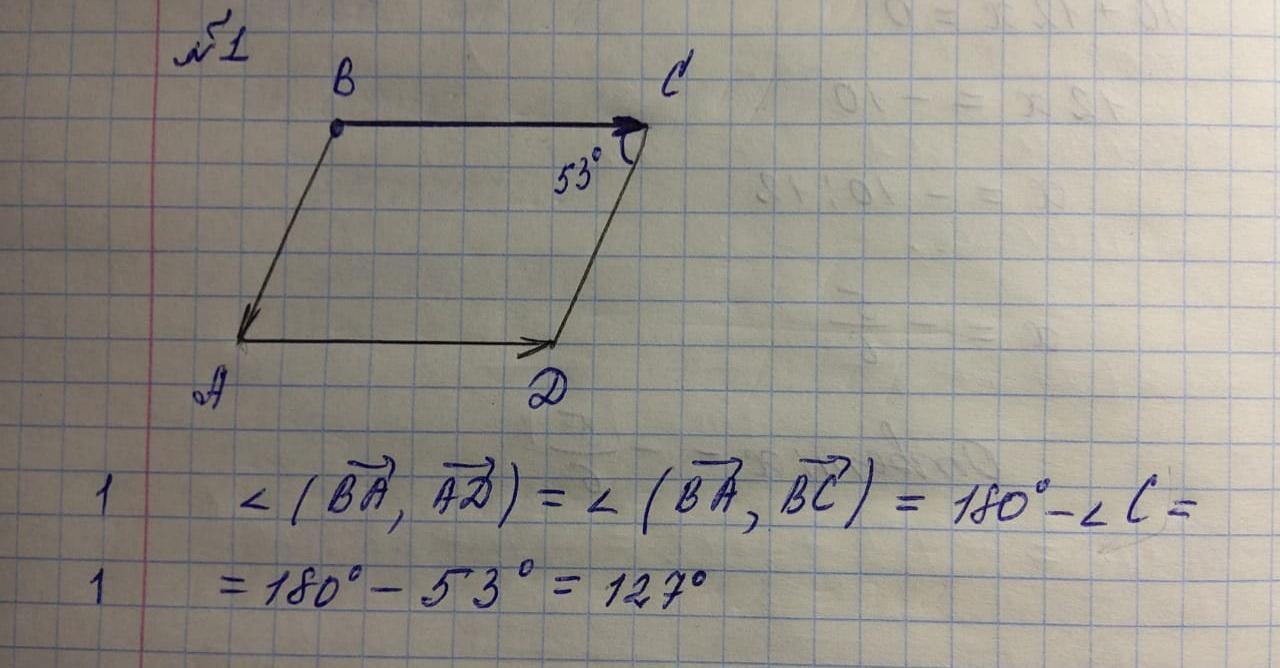 №1
B
C
53°
A
D
1 ∠(BA→, AD→) = ∠(BA→, BC→) = 180° - ∠C =
1 = 180° - 53° = 127°